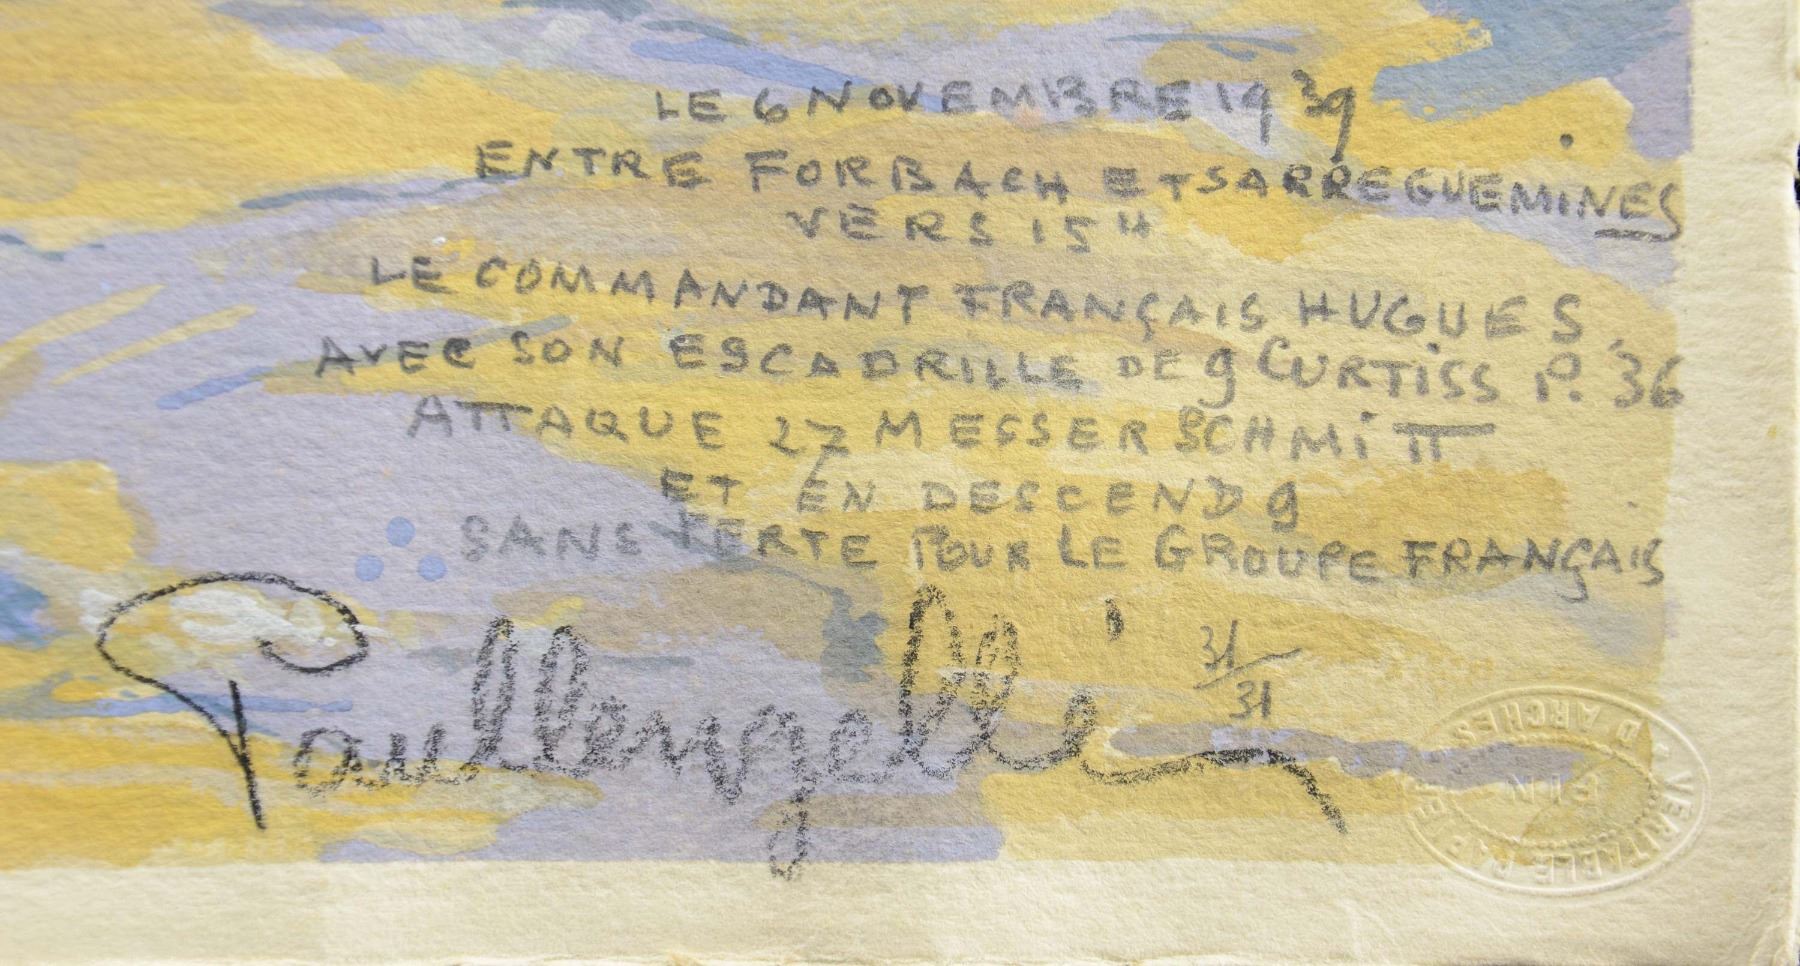 LE 6 NOVEMBRE 1939
ENTRE FORBACH ET SARREGUEMINES
VERS 15H
LE COMMANDANT FRANÇAIS HUGUES
AVEC SON ESCADRILLE DE 9 CURTISS P. 36
ATTAQUE 27 MESSERSCHMITT
ET EN DESCEND 9
SANS PERTE POUR LE GROUPE FRANÇAIS
Paul Lengellé
31/31
VERITABLE PAPIER D'ARCHES
FIN